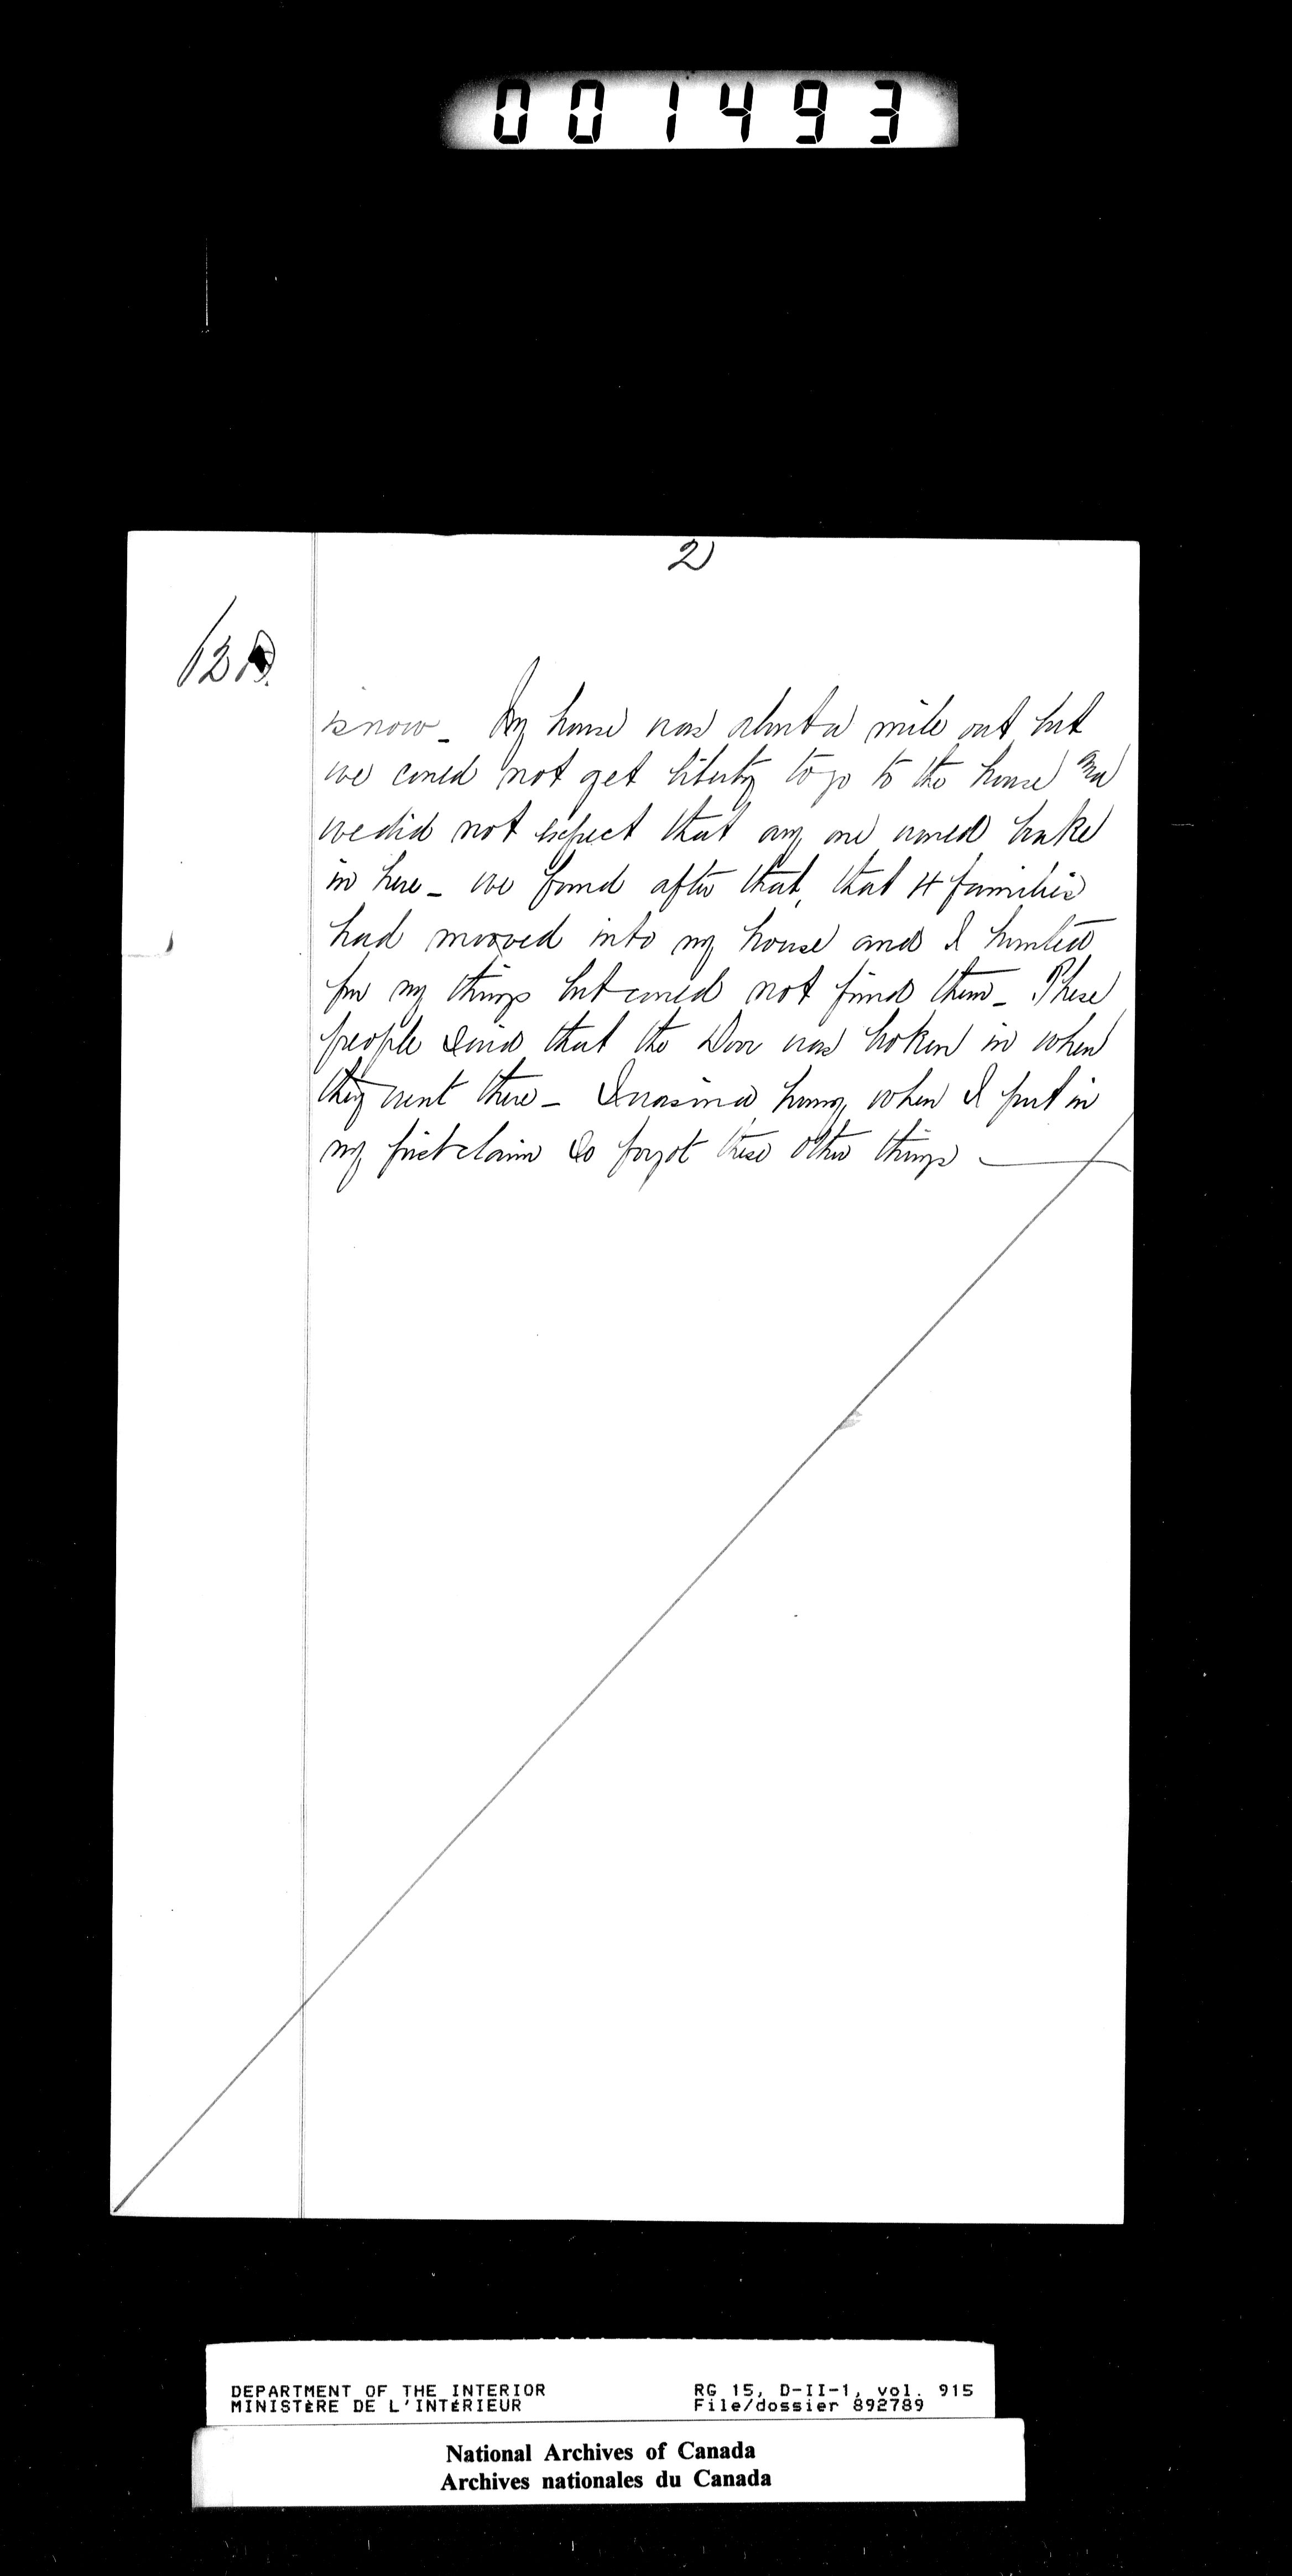 001493
2
12
know _ My house was about a mile out but
we could not get liberty to go to the house and
we did not expect that any one would brake
in here _ we found after that, that 4 families
had mooved into my house and I hunted
for my things but could not find them _ These
people said that the Door was broken in when
they went there _ I was in a hurry when I put in
my first claim so forgot these other things
DEPARTMENT OF THE INTERIOR RG 15, D-II-1, vol. 915
MINISTÈRE DE L'INTÉRIEUR File/dossier 892789
National Archives of Canada
Archives nationales du Canada